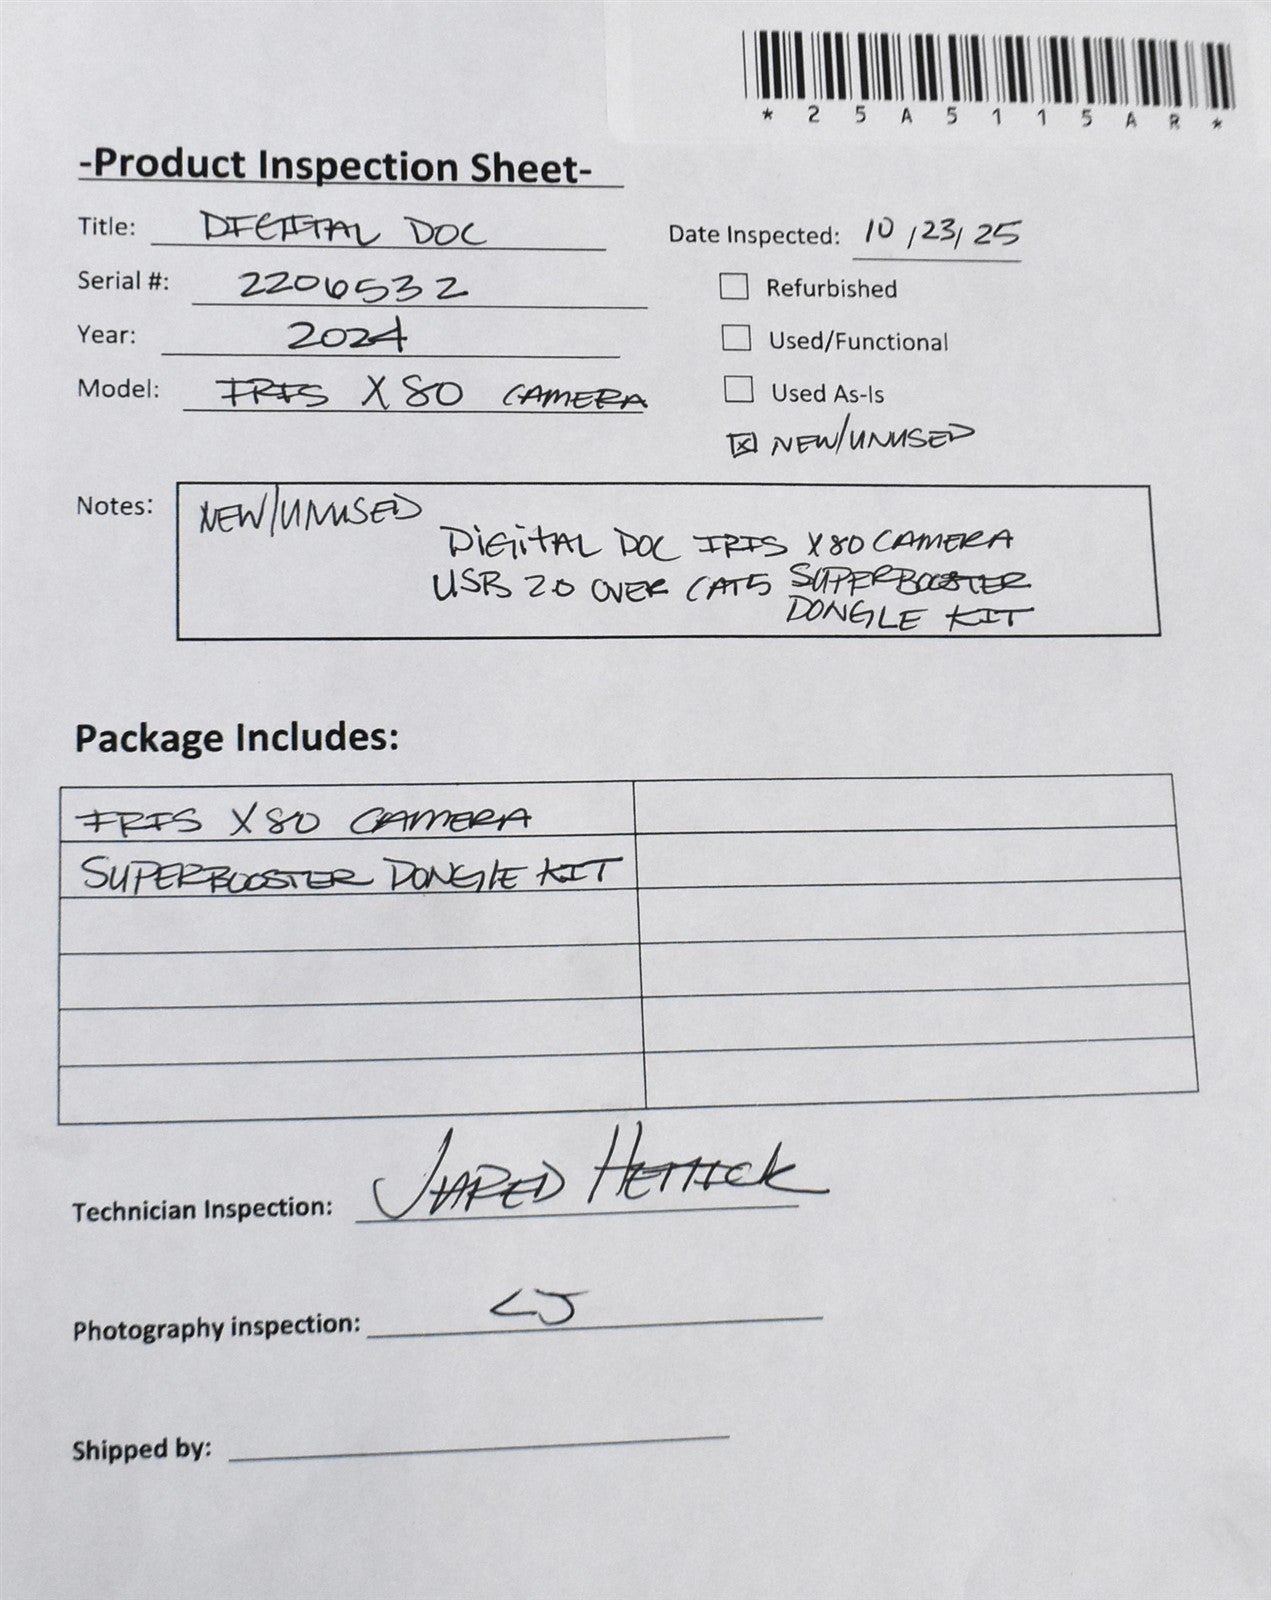 *25A5115AR*
-Product Inspection Sheet-
Title: DIGITAL DOC
Date Inspected: 10/23/25
Serial #: 2206532
Refurbished
Year: 2024
Used/Functional
Model: IRIS X80 CAMERA
Used As-Is
NEW/UNUSED
Notes: NEW/UNUSED
DIGITAL DOC IRIS X80 CAMERA
USB 2.0 OVER CAT5 SUPERBOOSTER
DONGLE KIT
Package Includes:
IRIS X80 CAMERA
SUPERBOOSTER DONGLE KIT
Technician Inspection: JARED HETTICK
Photography inspection: CJ
Shipped by: